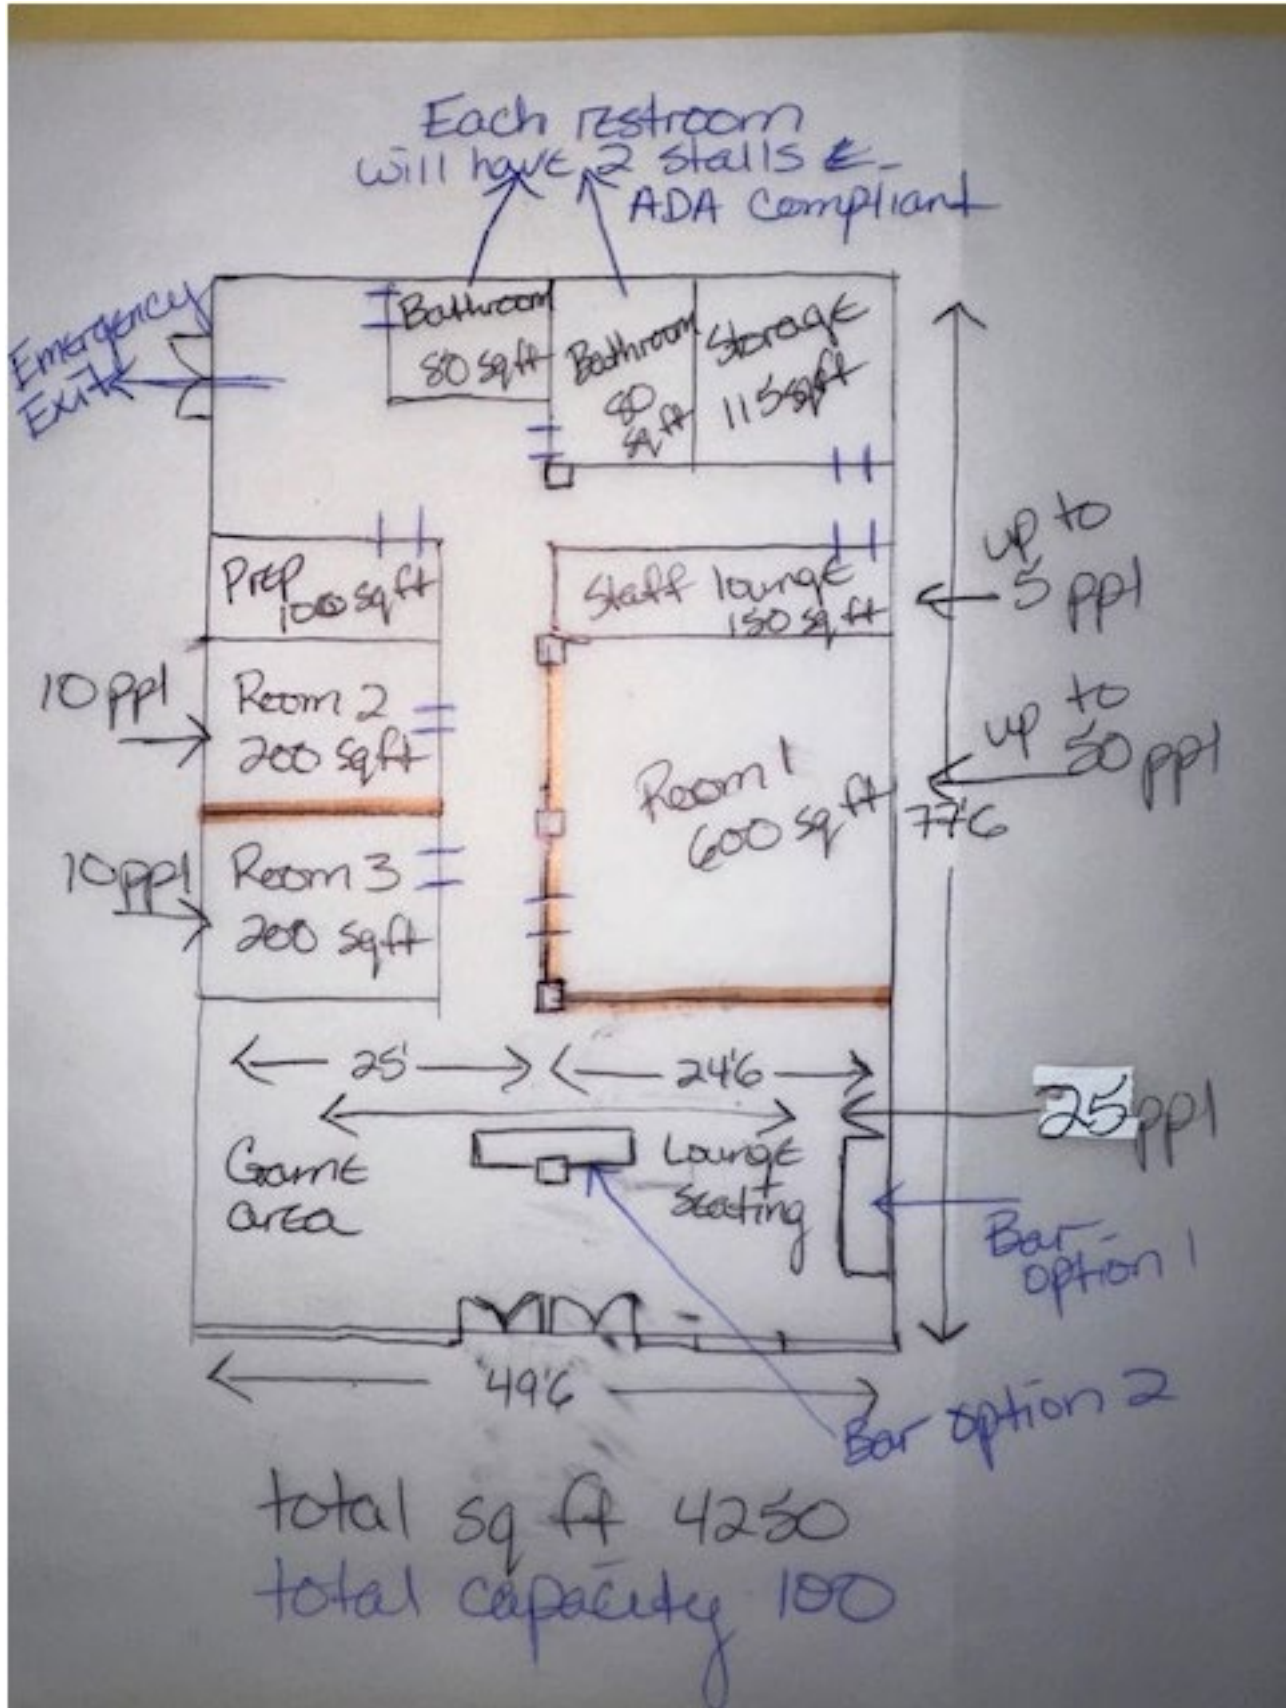 Each restroom
will have 2 stalls &
ADA Compliant
Emergency
Exit
Bathroom
80 sq ft
Bathroom
80
sq ft
Storage
115 sq ft
Prep
100 sq ft
Staff lounge
150 sq ft
up to
5 ppl
10 ppl
Room 2
200 sq ft
Room 1
600 sq ft
up to
50 ppl
77'6
10 ppl
Room 3
200 sq ft
25'
24'6
25 ppl
Game
area
Lounge
+
Seating
Bar
option 1
49'6
Bar option 2
total sq ft 4250
total capacity 100